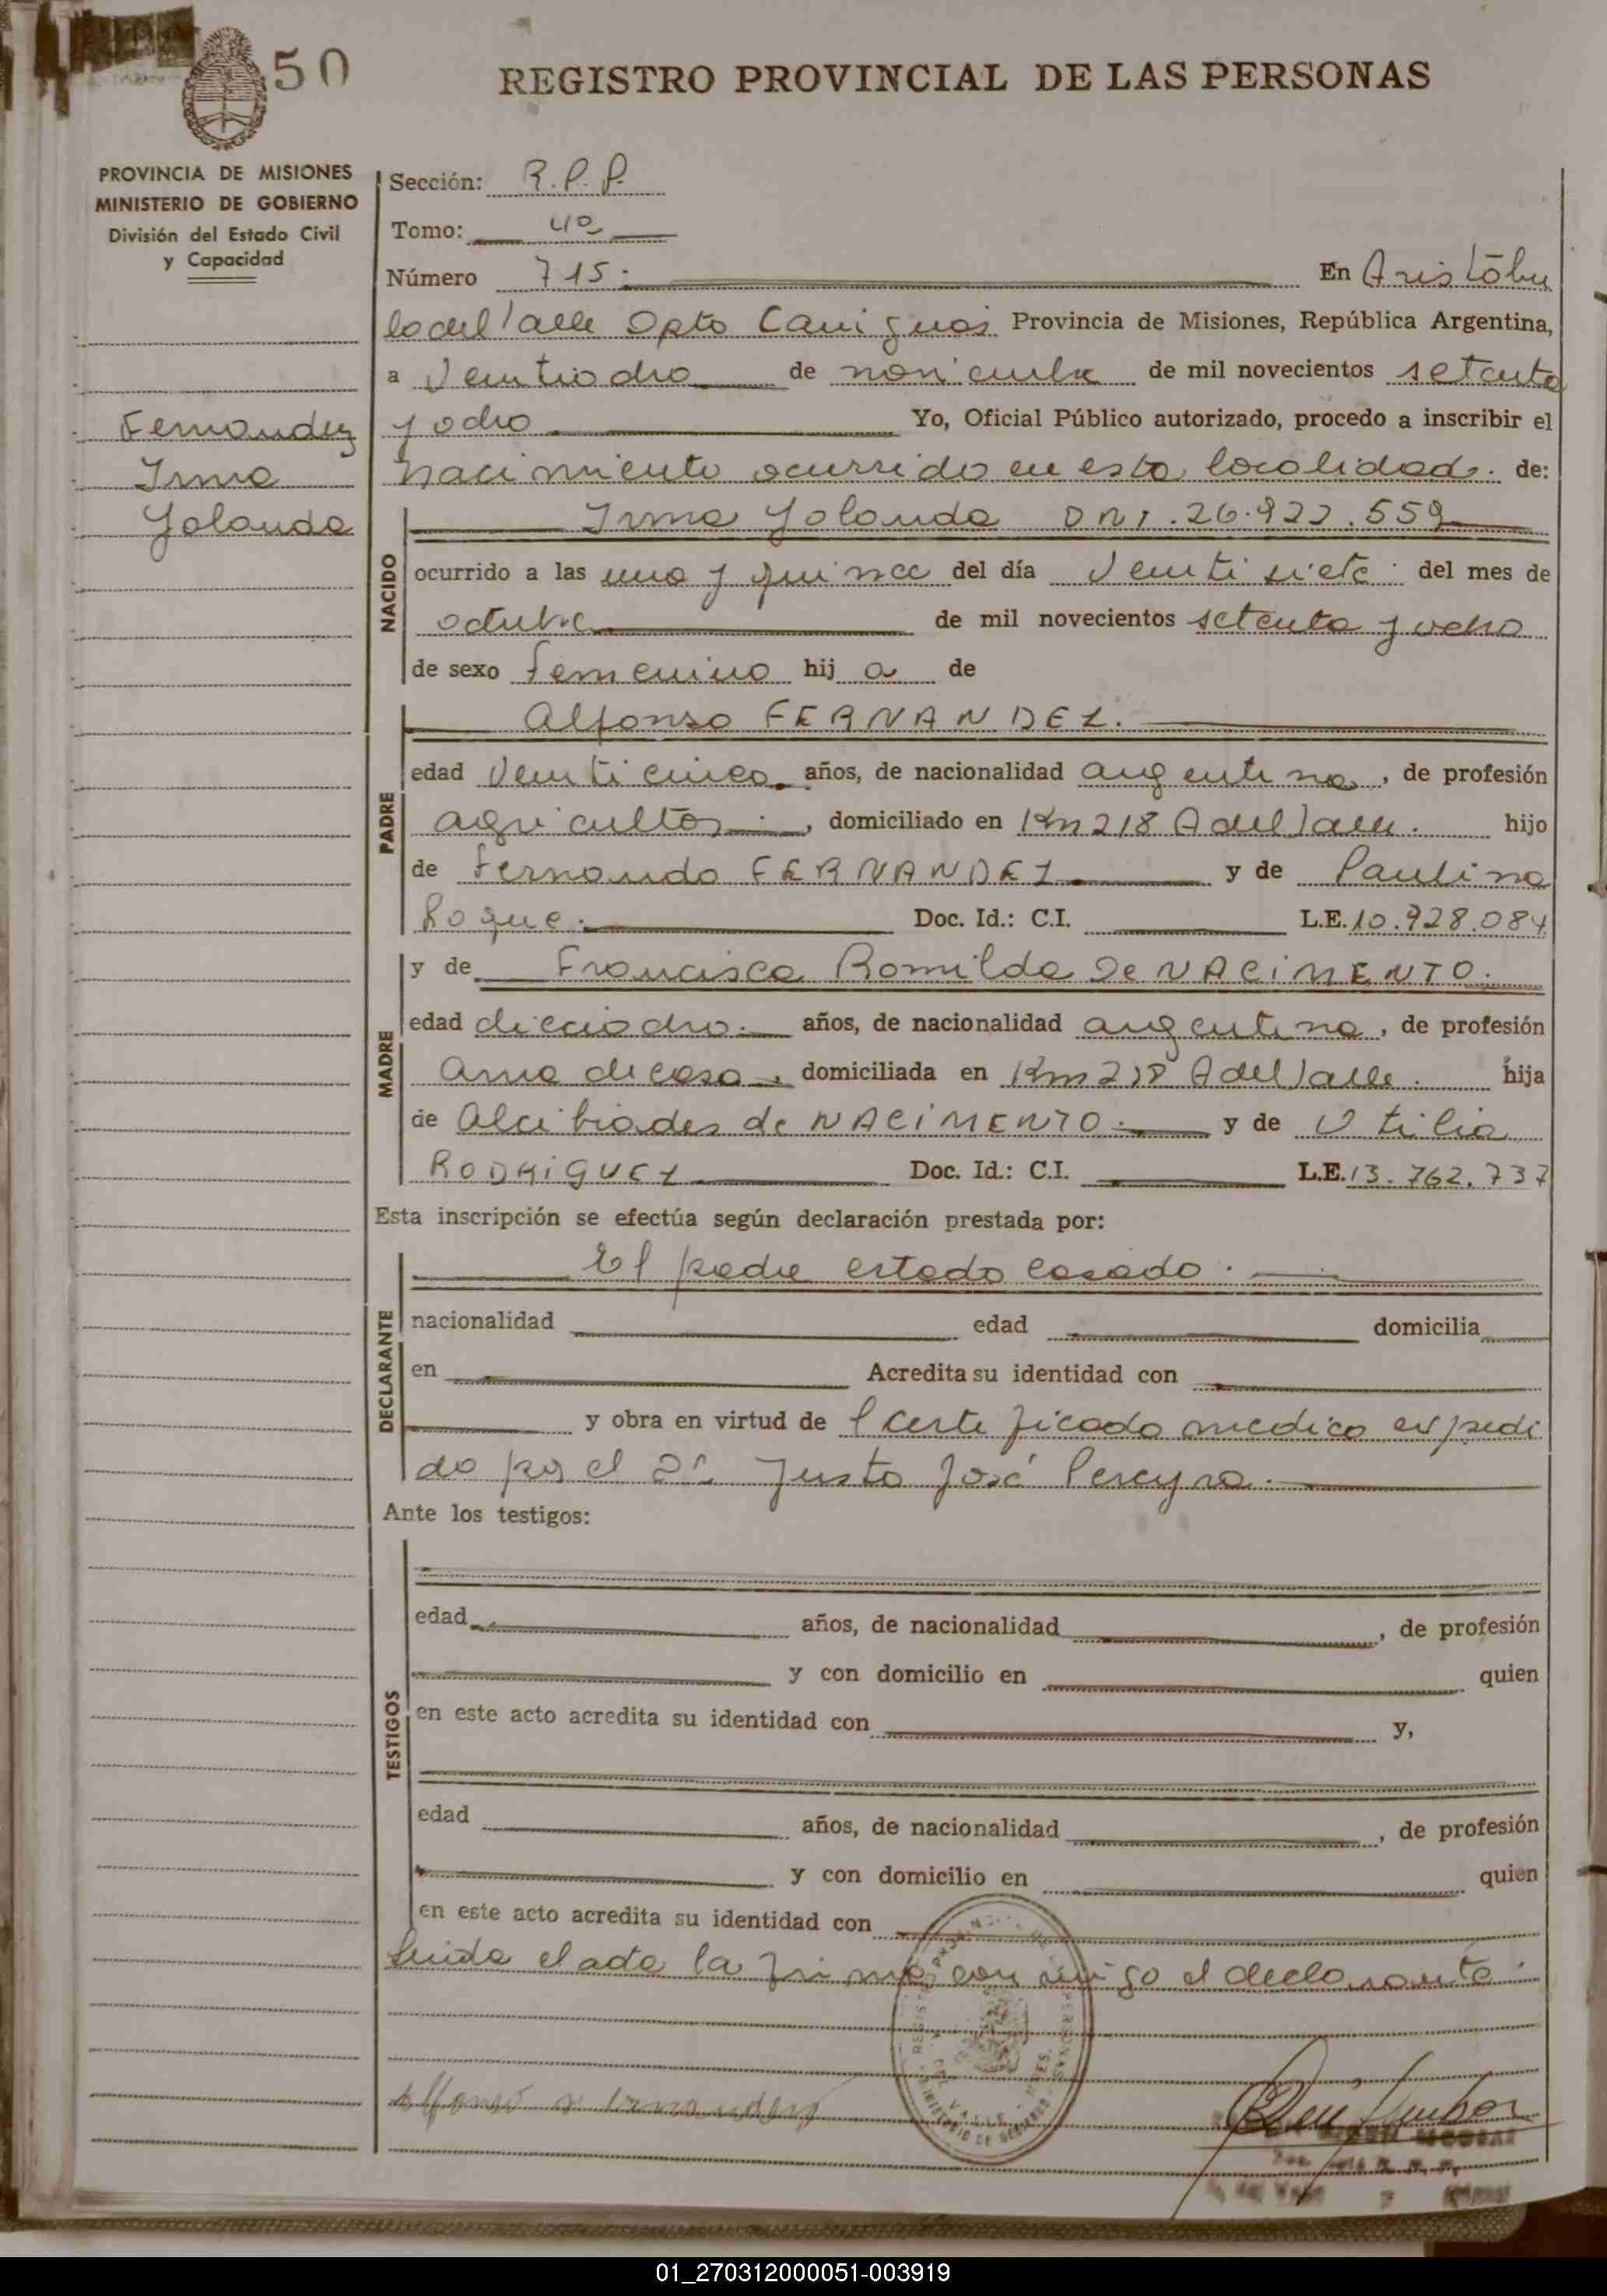 50
REGISTRO PROVINCIAL DE LAS PERSONAS
PROVINCIA DE MISIONES
MINISTERIO DE GOBIERNO
División del Estado Civil
y Capacidad
Sección: R.P.P.
Tomo: 4º
Número 715. En Aristóbu
lo del Valle Dpto Cainguás Provincia de Misiones, República Argentina,
a Veintiocho de noviembre de mil novecientos setenta
y ocho Yo, Oficial Público autorizado, procedo a inscribir el
Fernandez
Irma
Yolanda
nacimiento ocurrido en esta localidad. de:
NACIDO
Irma Yolanda DNI. 26.922.559
ocurrido a las una y quince del día Veintisiete del mes de
octubre de mil novecientos setenta y ocho
de sexo femenino hij a de
PADRE
Alfonso FERNANDEZ.
edad Veinticinco años, de nacionalidad argentina, de profesión
agricultor, domiciliado en Km 218 A del Valle. hijo
de Fernando FERNANDEZ y de Paulina
Roque. Doc. Id.: C.I. L.E. 10.928.084
MADRE
y de Francisca Romilda De NACIMENTO.
edad dieciocho. años, de nacionalidad argentina, de profesión
ama de casa, domiciliada en Km 218 A del Valle. hija
de Alcibiades de NACIMENTO. y de Otilia
RODRIGUEZ Doc. Id.: C.I. L.E. 13.762.737
Esta inscripción se efectúa según declaración prestada por:
DECLARANTE
El padre estado casado.
nacionalidad edad domicilia
en Acredita su identidad con
y obra en virtud de l certificado medico expedi
do por el Dr Justo José Pereyra.
Ante los testigos:
TESTIGOS
edad años, de nacionalidad, de profesión
y con domicilio en quien
en este acto acredita su identidad con y,
edad años, de nacionalidad, de profesión
y con domicilio en quien
en este acto acredita su identidad con
Leida el acta la firma conmigo el declarante.
01_270312000051-003919